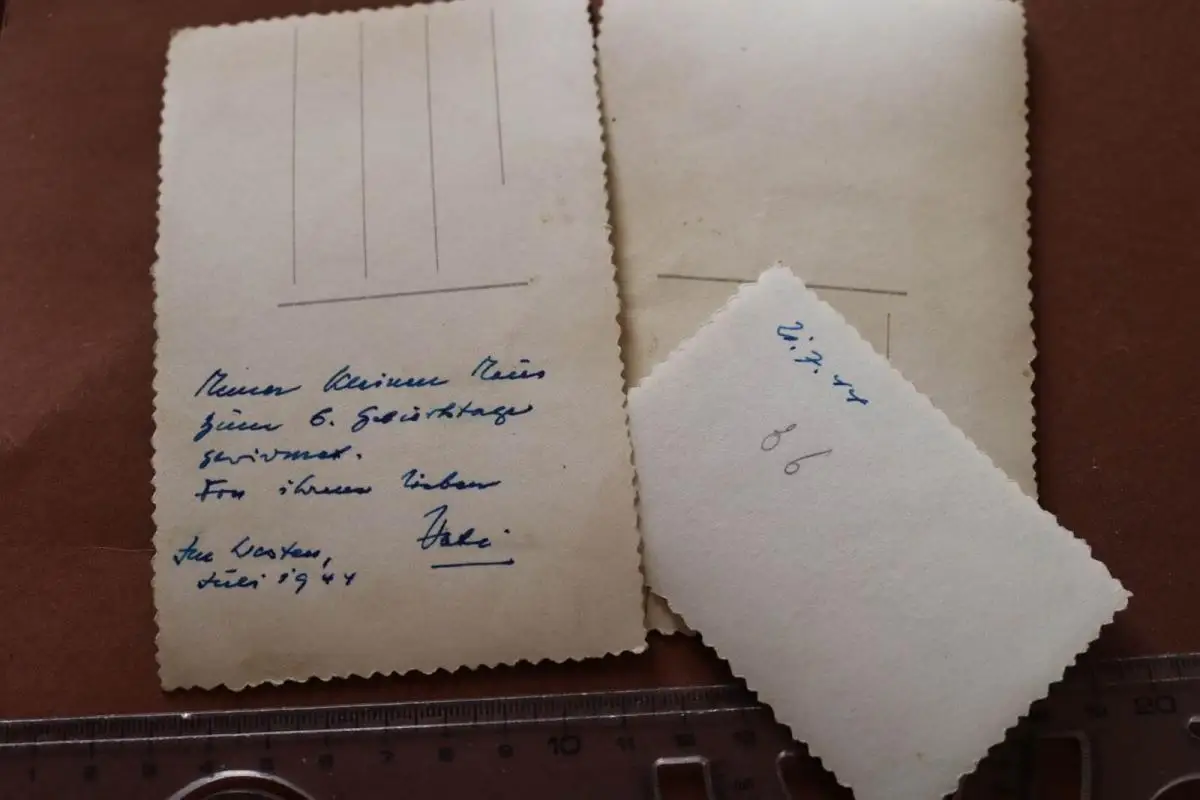 Meiner kleinen Maus
zum 6. Geburtstage
gewidmet.
Von ihrem lieben
Vati
Im Westen,
Juli 1944
7. 44
86
1 2 3 4 5 6 7 8 9 10 11 12 13 15 19 20